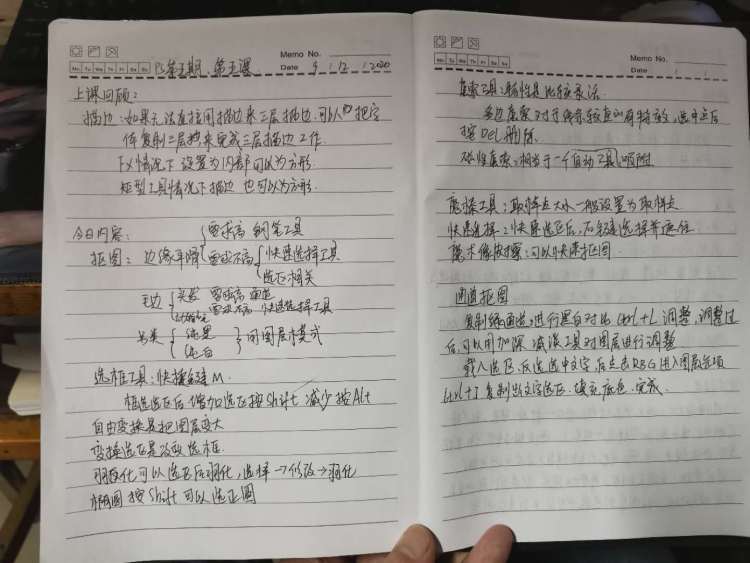 Memo No.
Mo Tu We Th Fr Sa Su
Date 9 / 12 / 2020
PS第五期、第五课
上课回顾:
描边:如果无法直接用描边来三层描边,可以把字
体复制三层独来完成三层描边工作.
FX情况下 设置为内部可以为方形.
矩型工具情况下描边 也可以为方形.
今日内容:
需求高 钢笔工具
抠图:边缘平滑 需求不高 快速选择工具
选区相关
毛边 头发 需求高 通道
需求不高 快速选择工具
另类 纯黑
纯白 用图层模式
选框工具:快捷键 M.
框选选区后 增加选区按Shift 减少按Alt
自由变换是把图层变大
变换选区是改改选框.
羽化可以选区后羽化,选择→修改→羽化
椭圆 按Shift 可以选正圆
Memo No.
Mo Tu We Th Fr Sa Su
Date / /
套索工具:随性是比较灵活.
多边套索对于线条较直的有特效,选中点后
按DEL删除.
磁性套索:相当于一个自动工具,吸附
魔棒工具:取样点大小一般设置为取样点
快速选择:快速选区后,右键选择并遮住
魔术橡皮擦:可以快速抠图.
通道抠图
复制绿通道,进行黑白对比 Ctrl+L 调整,调整过
后,可以用加深减淡工具对图层进行调整
载入选区,反选选中文字,后点击RBG进入图层选项
Ctrl+J 复制出文字选区.填充底色.完成.